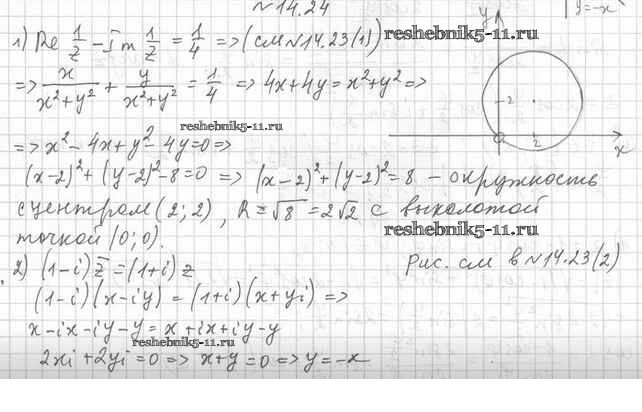 №14.24
y=-x
1) Re 1/z - Im 1/z = 1/4 => (см №14.23(1))
=> x/(x²+y²) + y/(x²+y²) = 1/4 => 4x+4y=x²+y² =>
=> x²-4x+y²-4y=0 =>
(x-2)²+(y-2)²-8=0 => (x-2)²+(y-2)²=8 - окружность
с центром (2; 2), R=√8=2√2 с выколотой
точкой (0; 0).
y
2
2
x
рис. см в №14.23(2)
2) (1-i)z̄=(1+i)z
(1-i)(x-iy)=(1+i)(x+yi) =>
x-ix-iy-y=x+ix+iy-y
2xi+2yi=0 => x+y=0 => y=-x
reshebnik5-11.ru
reshebnik5-11.ru
reshebnik5-11.ru
reshebnik5-11.ru
reshebnik5-11.ru